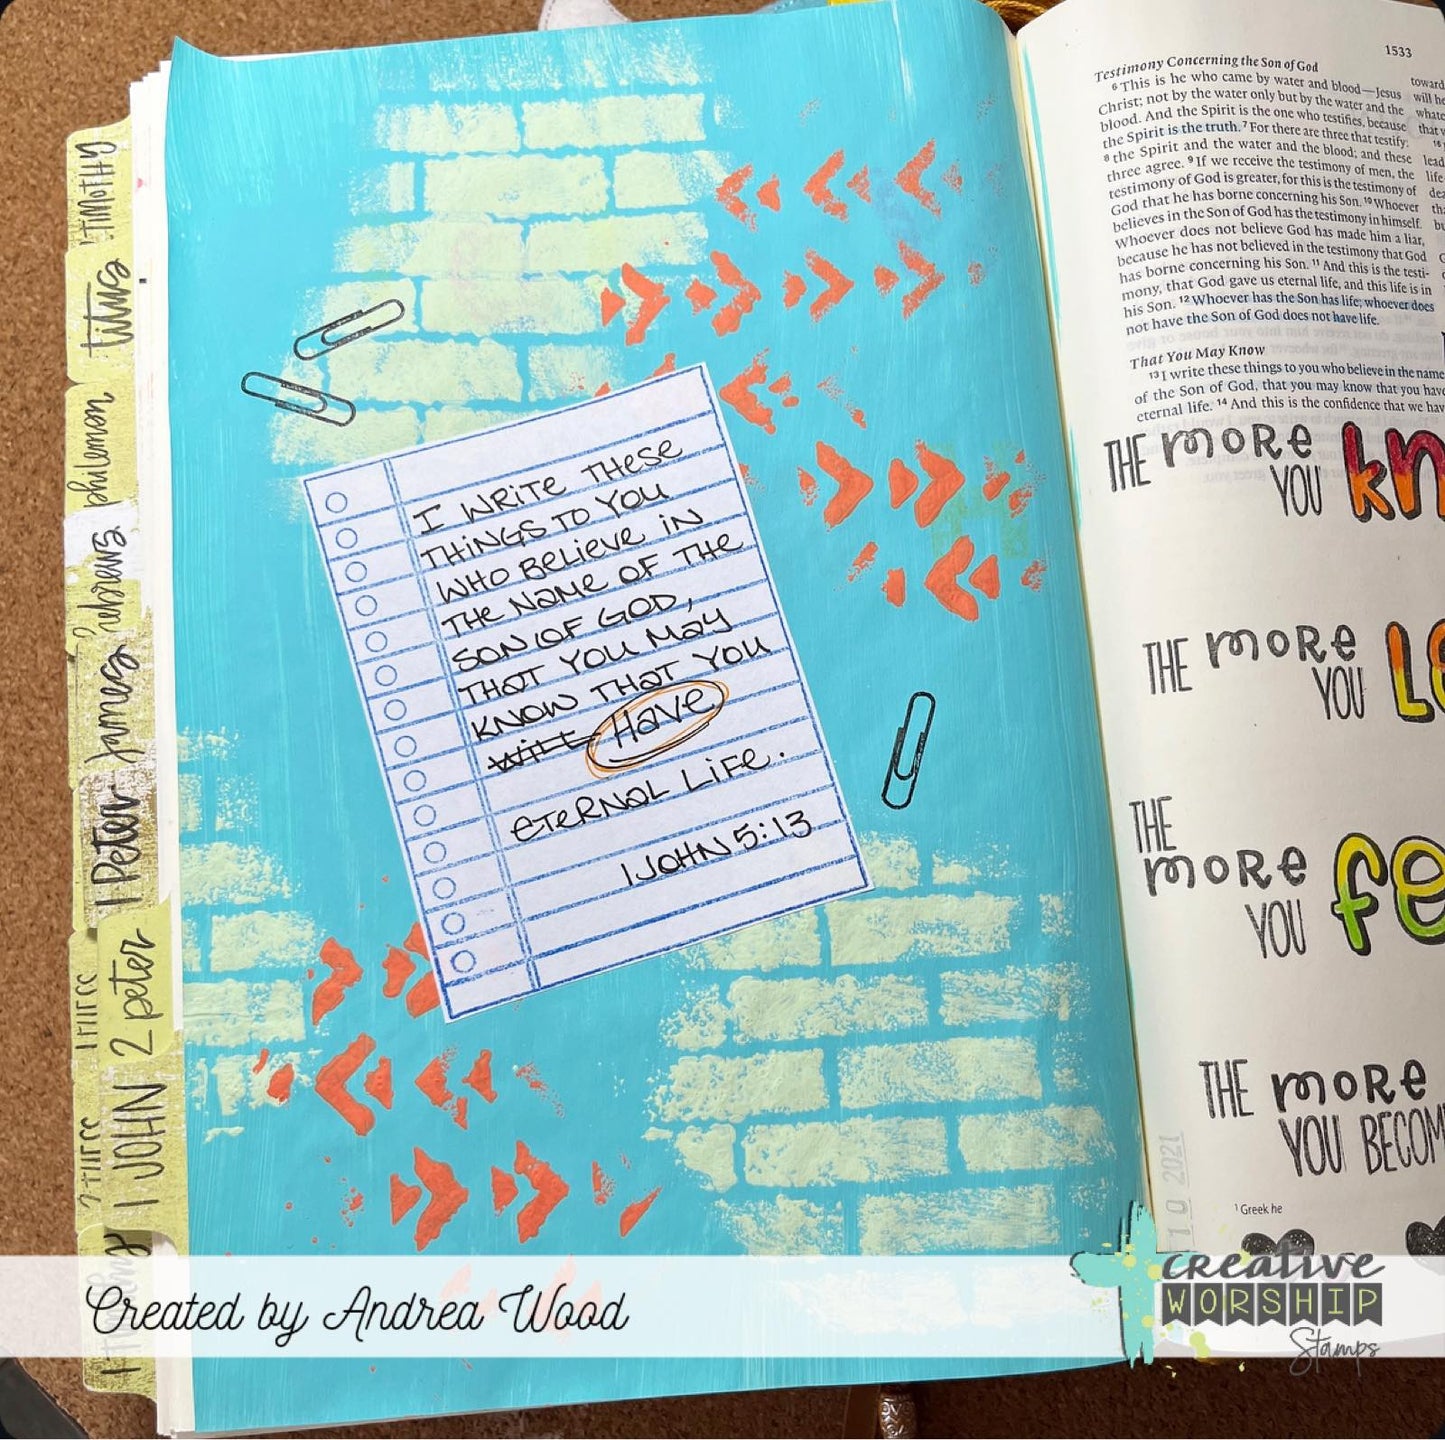 1 TIMOTHY
titus
philemon
James
1 Peter
2 peter
1 JOHN
I WRITE THESE
THINGS TO YOU
WHO BELIEVE IN
THE NAME OF THE
SON OF GOD,
THAT YOU MAY
KNOW THAT YOU
WILL HAVE
ETERNAL LIFE.
1 JOHN 5:13
1533
Testimony Concerning the Son of God
6 This is he who came by water and blood—Jesus
Christ; not by the water only but by the water and the
blood. And the Spirit is the one who testifies, because
the Spirit is the truth. 7 For there are three that testify:
8 the Spirit and the water and the blood; and these
three agree. 9 If we receive the testimony of men, the
testimony of God is greater, for this is the testimony of
God that he has borne concerning his Son. 10 Whoever
believes in the Son of God has the testimony in himself.
Whoever does not believe God has made him a liar,
because he has not believed in the testimony that God
has borne concerning his Son. 11 And this is the testi-
mony, that God gave us eternal life, and this life is in
his Son. 12 Whoever has the Son has life; whoever does
not have the Son of God does not have life.
That You May Know
13 I write these things to you who believe in the name
of the Son of God, that you may know that you have
eternal life. 14 And this is the confidence that we hav
toward
will he
what
that
16
lead
life
THE more
YOU kn
THE more
YOU
THE
more
YOU fe
THE more
YOU BECOM
1 Greek he
10 2021
Created by Andrea Wood
creative
WORSHIP
Stamps